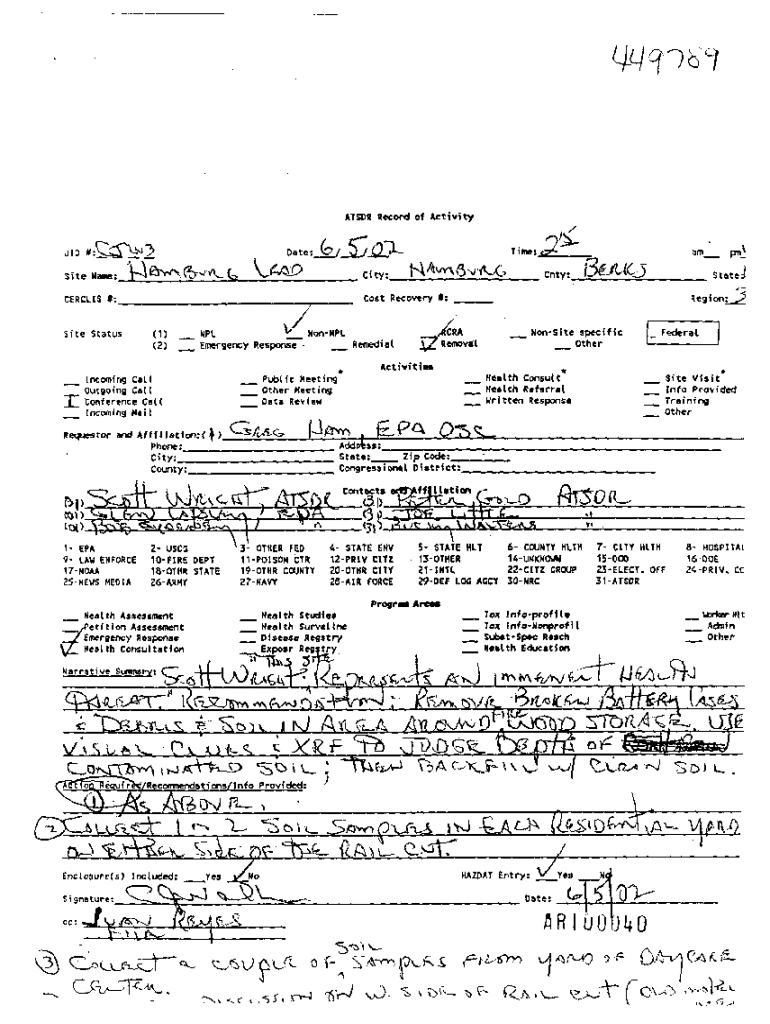 449789
ATSDR Record of Activity
UID #: CJW3 Date: 6/5/02 Time: 2 25 am pm
Site Name: HAMBURG LEAD City: HAMBURG Cnty: BERKS State:
CERCLIS #: Cost Recovery #: Region: 3
Site Status (1) NPL Non-NPL RCRA Non-Site specific Federal
(2) Emergency Response Remedial Removal Other
Activities
Incoming Call Public Meeting* Health Consult* Site Visit*
Outgoing Call Other Meeting Health Referral Info Provided
Conference Call Data Review Written Response Training
Incoming Mail Other
Requestor and Affiliation:( ) GREG HAM, EPA OSC
Phone: Address:
City: State: Zip Code:
County: Congressional District:
Contacts and Affiliation
31) SCOTT WRIGHT, ATSDR 31) PETER GOLD ATSDR
EPA LITTLE "
BOB "
1- EPA 2- USCG 3- OTHER FED 4- STATE ENV 5- STATE HLT 6- COUNTY HLTH 7- CITY HLTH 8- HOSPITAL
9- LAW ENFORCE 10-FIRE DEPT 11-POISON CTR 12-PRIV CITZ 13-OTHER 14-UNKNOWN 15-DOD 16-DOE
17-NOAA 18-OTHR STATE 19-OTHR COUNTY 20-OTHR CITY 21-INTL 22-CITZ GROUP 23-ELECT. OFF 24-PRIV. CO
25-NEWS MEDIA 26-ARMY 27-NAVY 28-AIR FORCE 29-DEF LOG AGCY 30-NRC 31-ATSDR
Program Areas
Health Assessment Health Studies Tox Info-profile Worker Hlt
Petition Assessment Health Surveilnc Tox Info-Nonprofil Admin
Emergency Response Disease Regstry Subst-Spec Resch Other
Health Consultation Exposr Regstry Health Education
"THIS SITE
Narrative Summary: SCOTT WRIGHT: REPRESENTS AN IMMINENT HEALTH
THREAT." RECOMMENDATION: REMOVE BROKEN BATTERY CASES
& DEBRIS & SOIL IN AREA AROUND FIRE WOOD STORAGE. USE
VISUAL CLUES & XRF TO JUDGE DEPTH OF
CONTAMINATED SOIL; THEN BACKFILL W/ CLEAN SOIL.
Action Required/Recommendations/Info Provided:
① AS ABOVE.
② COLLECT 1 OR 2 SOIL SAMPLES IN EACH RESIDENTIAL YARD
ON EITHER SIDE OF THE RAIL CUT.
Enclosure(s) Included: Yes No HAZDAT Entry: Yes No
Signature: Date: 6/5/02
cc: JUAN REYES
AR100040
③ COLLECT A COUPLE OF SOIL SAMPLES FROM YARD OF DAYCARE
CENTER. DISCUSSION ON W. SIDE OF RAIL CUT (OLD